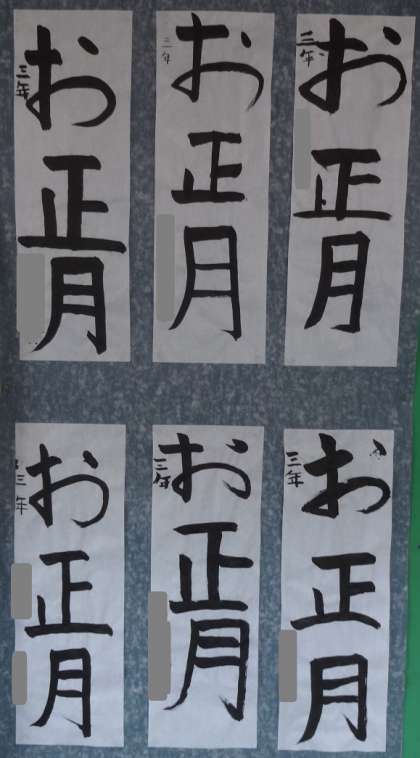 お正月
三年
お正月
三年
お正月
三年
お正月
三年
お正月
三年
お正月
三年